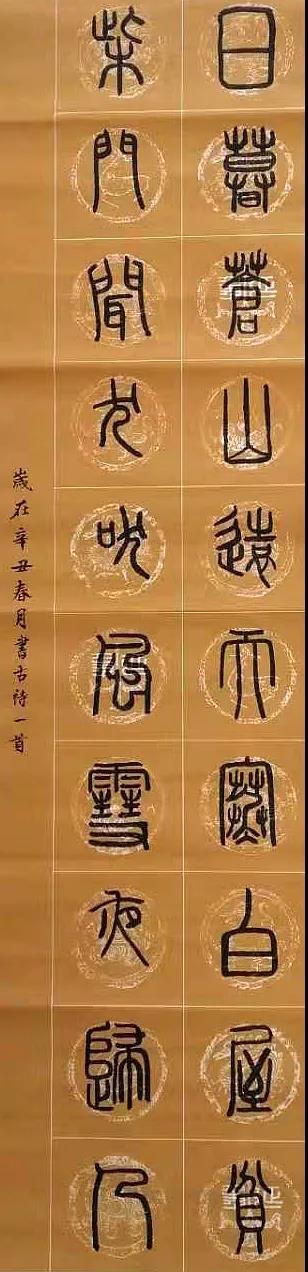 日暮蒼山遠天寒白屋貧
柴門聞犬吠風雪夜歸人
歲在辛丑春月書古詩一首